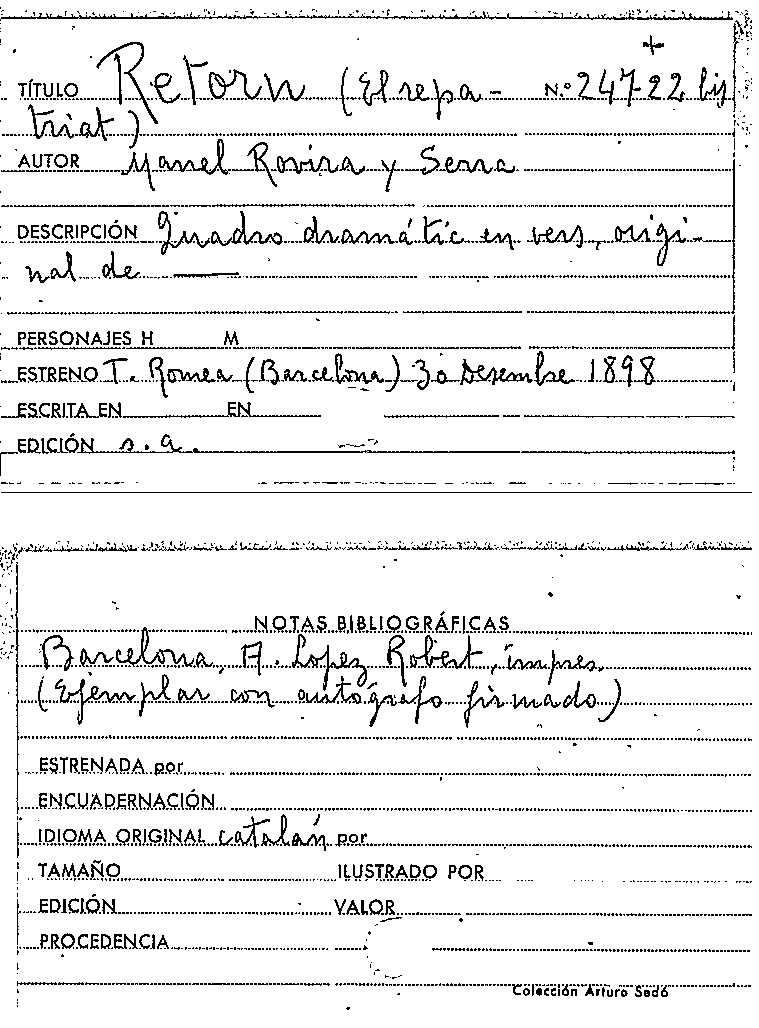 +
TÍTULO Retorn (El repa- N.º 247-22 bis
triat)
AUTOR Manel Rovira y Serra
DESCRIPCIÓN Quadro dramátic en vers, origi-
nal de ——
PERSONAJES H M
ESTRENO T. Romea (Barcelona) 30 Desembre 1898
ESCRITA EN EN
EDICIÓN s.a.
NOTAS BIBLIOGRÁFICAS
Barcelona, A. Lopez Robert, impres.
(Ejemplar con autógrafo firmado)
ESTRENADA por
ENCUADERNACIÓN
IDIOMA ORIGINAL catalán por
TAMAÑO ILUSTRADO POR
EDICIÓN VALOR
PROCEDENCIA
Colección Arturo Sedó